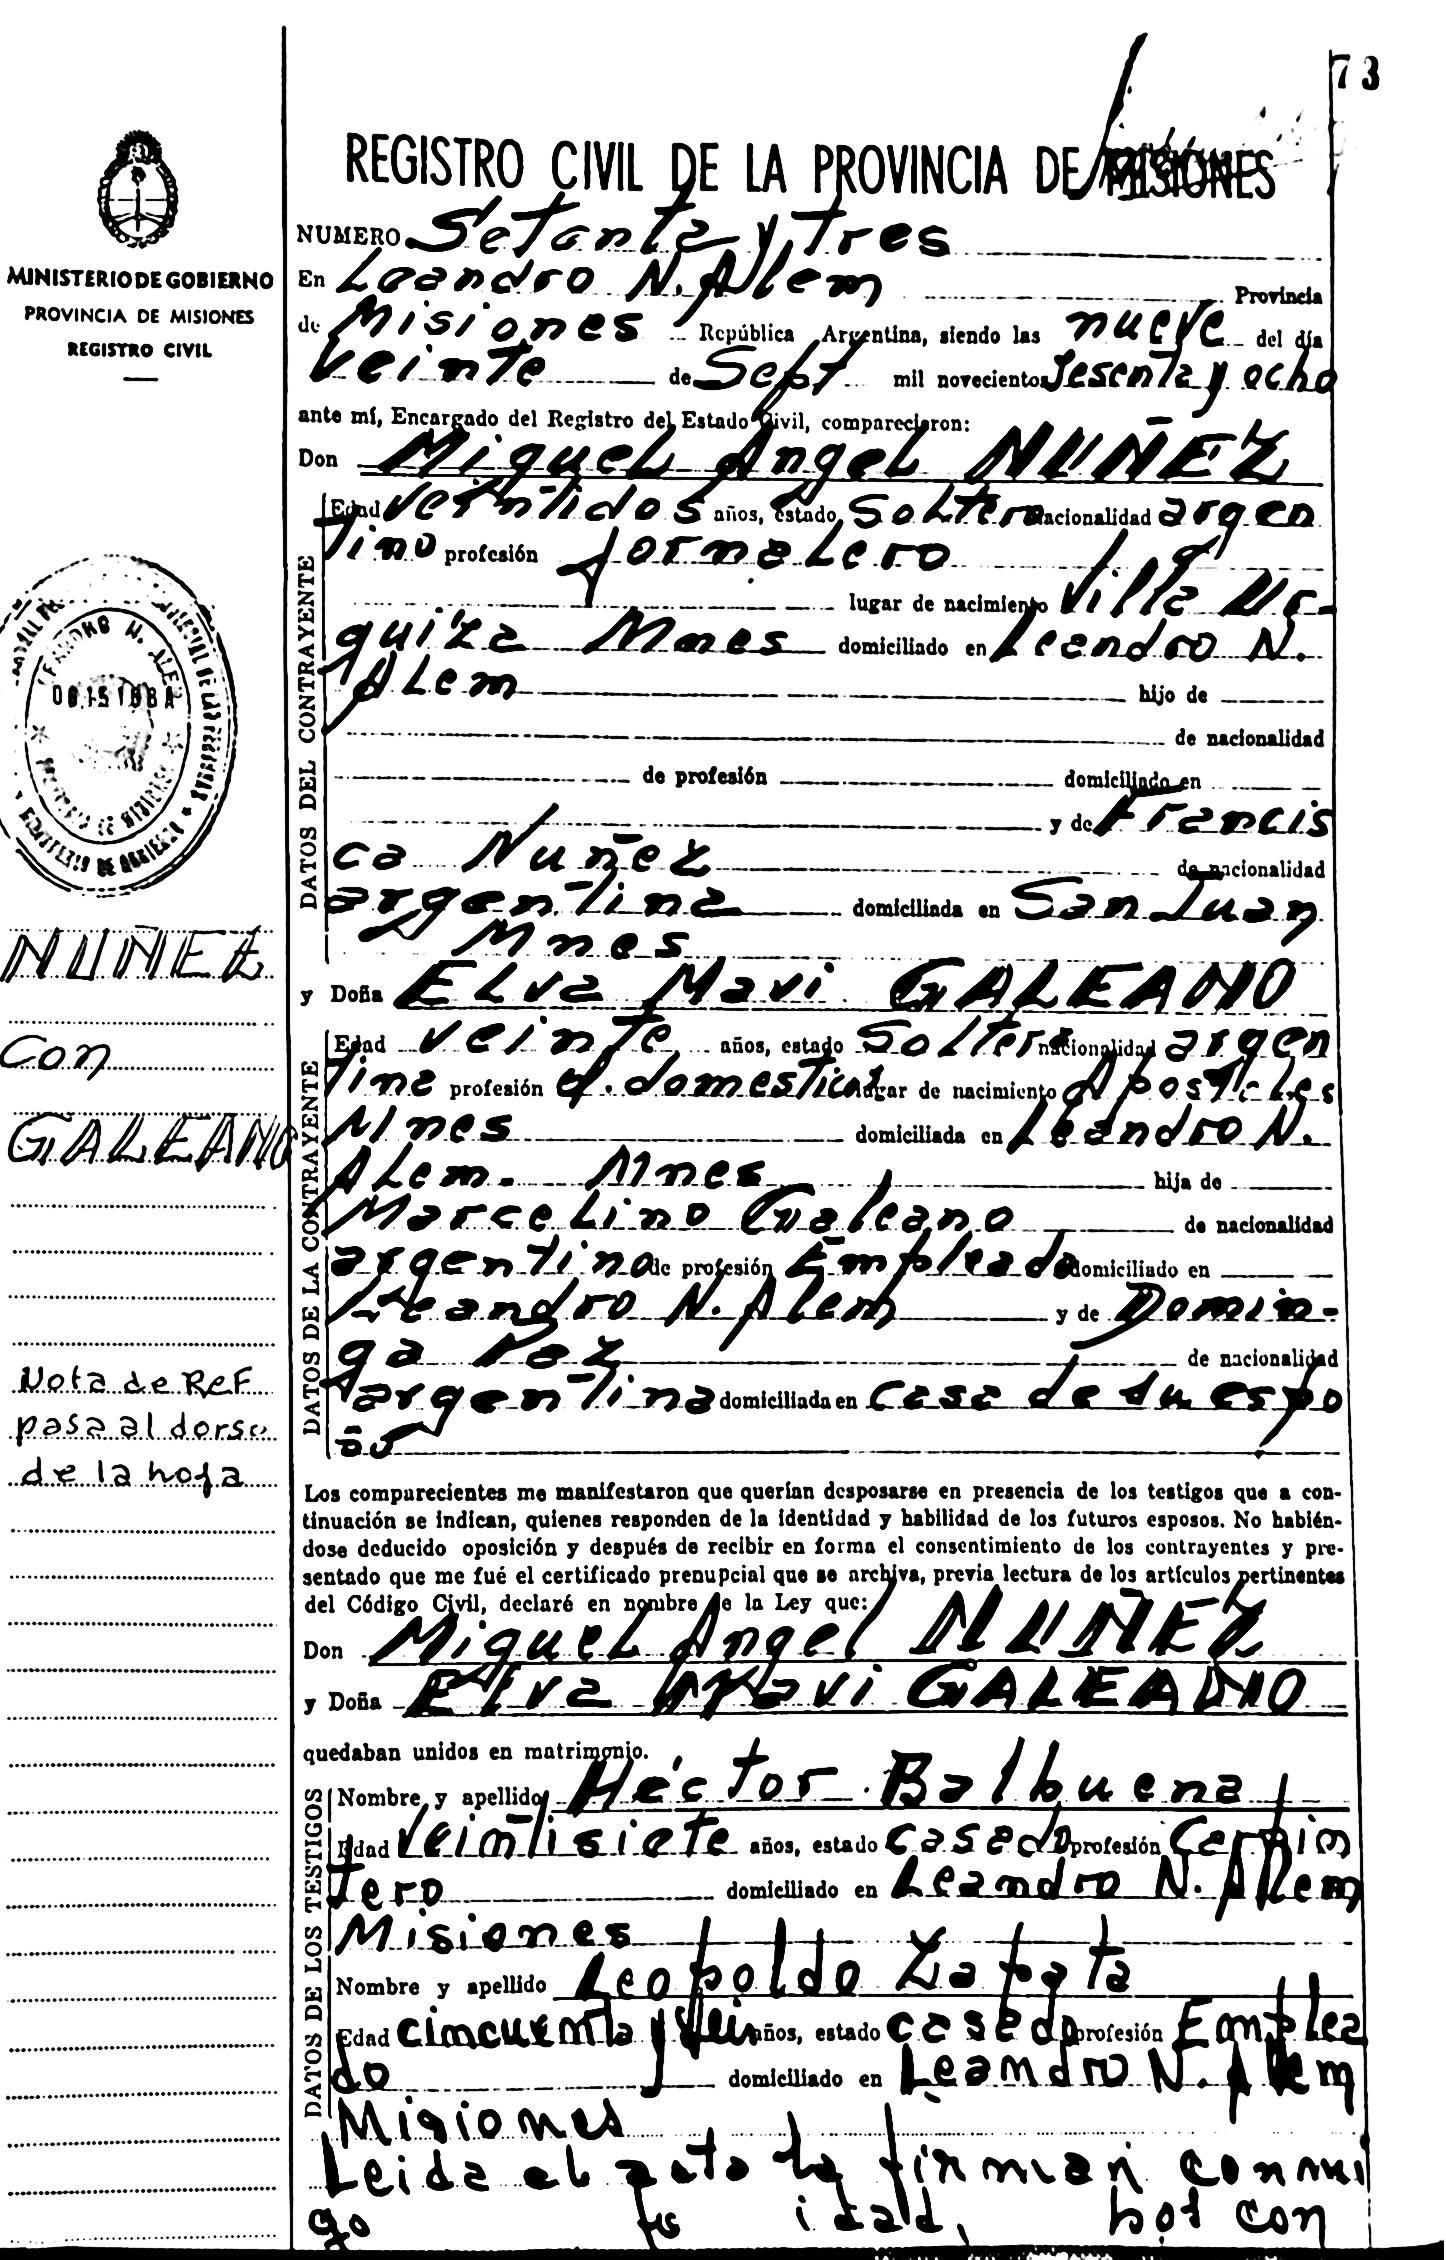 73
REGISTRO CIVIL DE LA PROVINCIA DE MISIONES
MINISTERIO DE GOBIERNO
PROVINCIA DE MISIONES
REGISTRO CIVIL
NUMERO Setenta y tres
En Leandro N. Alem Provincia
de Misiones República Argentina, siendo las nueve del día
veinte de Sept mil novecientos sesenta y ocho
ante mí, Encargado del Registro del Estado Civil, comparecieron:
Don Miguel Angel NUÑEZ
DATOS DEL CONTRAYENTE
Edad veintidos años, estado Soltero nacionalidad argen
tino profesión Jornalero
lugar de nacimiento Villa Ur-
quiza Mnes domiciliado en Leandro N.
Alem hijo de
de nacionalidad
de profesión domiciliado en
y de Francis
ca Nuñez de nacionalidad
argentina domiciliada en San Juan
Mnes
y Doña Elva Mavi GALEANO
DATOS DE LA CONTRAYENTE
Edad veinte años, estado Soltera nacionalidad argen
tina profesión q. domesticos lugar de nacimiento Apostoles
Mnes domiciliada en Leandro N.
Alem. Mnes hija de
Marcelino Galeano de nacionalidad
argentino de profesión Empleado domiciliado en
Leandro N. Alem y de Domin-
ga Paz de nacionalidad
argentina domiciliada en casa de su espo
so
NUÑEZ
con
GALEANO
Nota de Ref
pasa al dorso
de la hoja
Los comparecientes me manifestaron que querían desposarse en presencia de los testigos que a con-
tinuación se indican, quienes responden de la identidad y habilidad de los futuros esposos. No habién-
dose deducido oposición y después de recibir en forma el consentimiento de los contrayentes y pre-
sentado que me fué el certificado prenupcial que se archiva, previa lectura de los artículos pertinentes
del Código Civil, declaré en nombre de la Ley que:
Don Miguel Angel NUÑEZ
y Doña Elva Mavi GALEANO
quedaban unidos en matrimonio.
DATOS DE LOS TESTIGOS
Nombre y apellido Héctor Balbuena
Edad veintisiete años, estado casado profesión Carpin
tero domiciliado en Leandro N. Alem
Misiones
Nombre y apellido Leopoldo Zapata
Edad cincuenta y seis años, estado casado profesión Emplea
do domiciliado en Leandro N. Alem
Misiones
Leida el acta la firman conmi
go idad, con